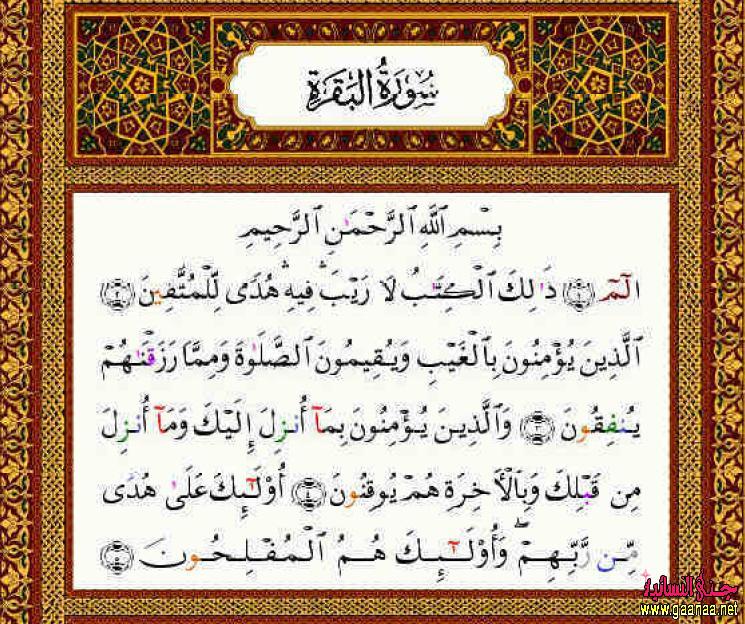 سُورَةُ البَقَرَةِ
بِسْمِ ٱللَّهِ ٱلرَّحْمَـٰنِ ٱلرَّحِيمِ
الٓمٓ ۝١ ذَٰلِكَ ٱلْكِتَـٰبُ لَا رَيْبَ ۛ فِيهِ ۛ هُدًى لِّلْمُتَّقِينَ ۝٢
ٱلَّذِينَ يُؤْمِنُونَ بِٱلْغَيْبِ وَيُقِيمُونَ ٱلصَّلَوٰةَ وَمِمَّا رَزَقْنَـٰهُمْ
يُنفِقُونَ ۝٣ وَٱلَّذِينَ يُؤْمِنُونَ بِمَآ أُنزِلَ إِلَيْكَ وَمَآ أُنزِلَ
مِن قَبْلِكَ وَبِٱلْـَٔاخِرَةِ هُمْ يُوقِنُونَ ۝٤ أُو۟لَـٰٓئِكَ عَلَىٰ هُدًى
مِّن رَّبِّهِمْ ۖ وَأُو۟لَـٰٓئِكَ هُمُ ٱلْمُفْلِحُونَ ۝٥
www.gaanaa.net